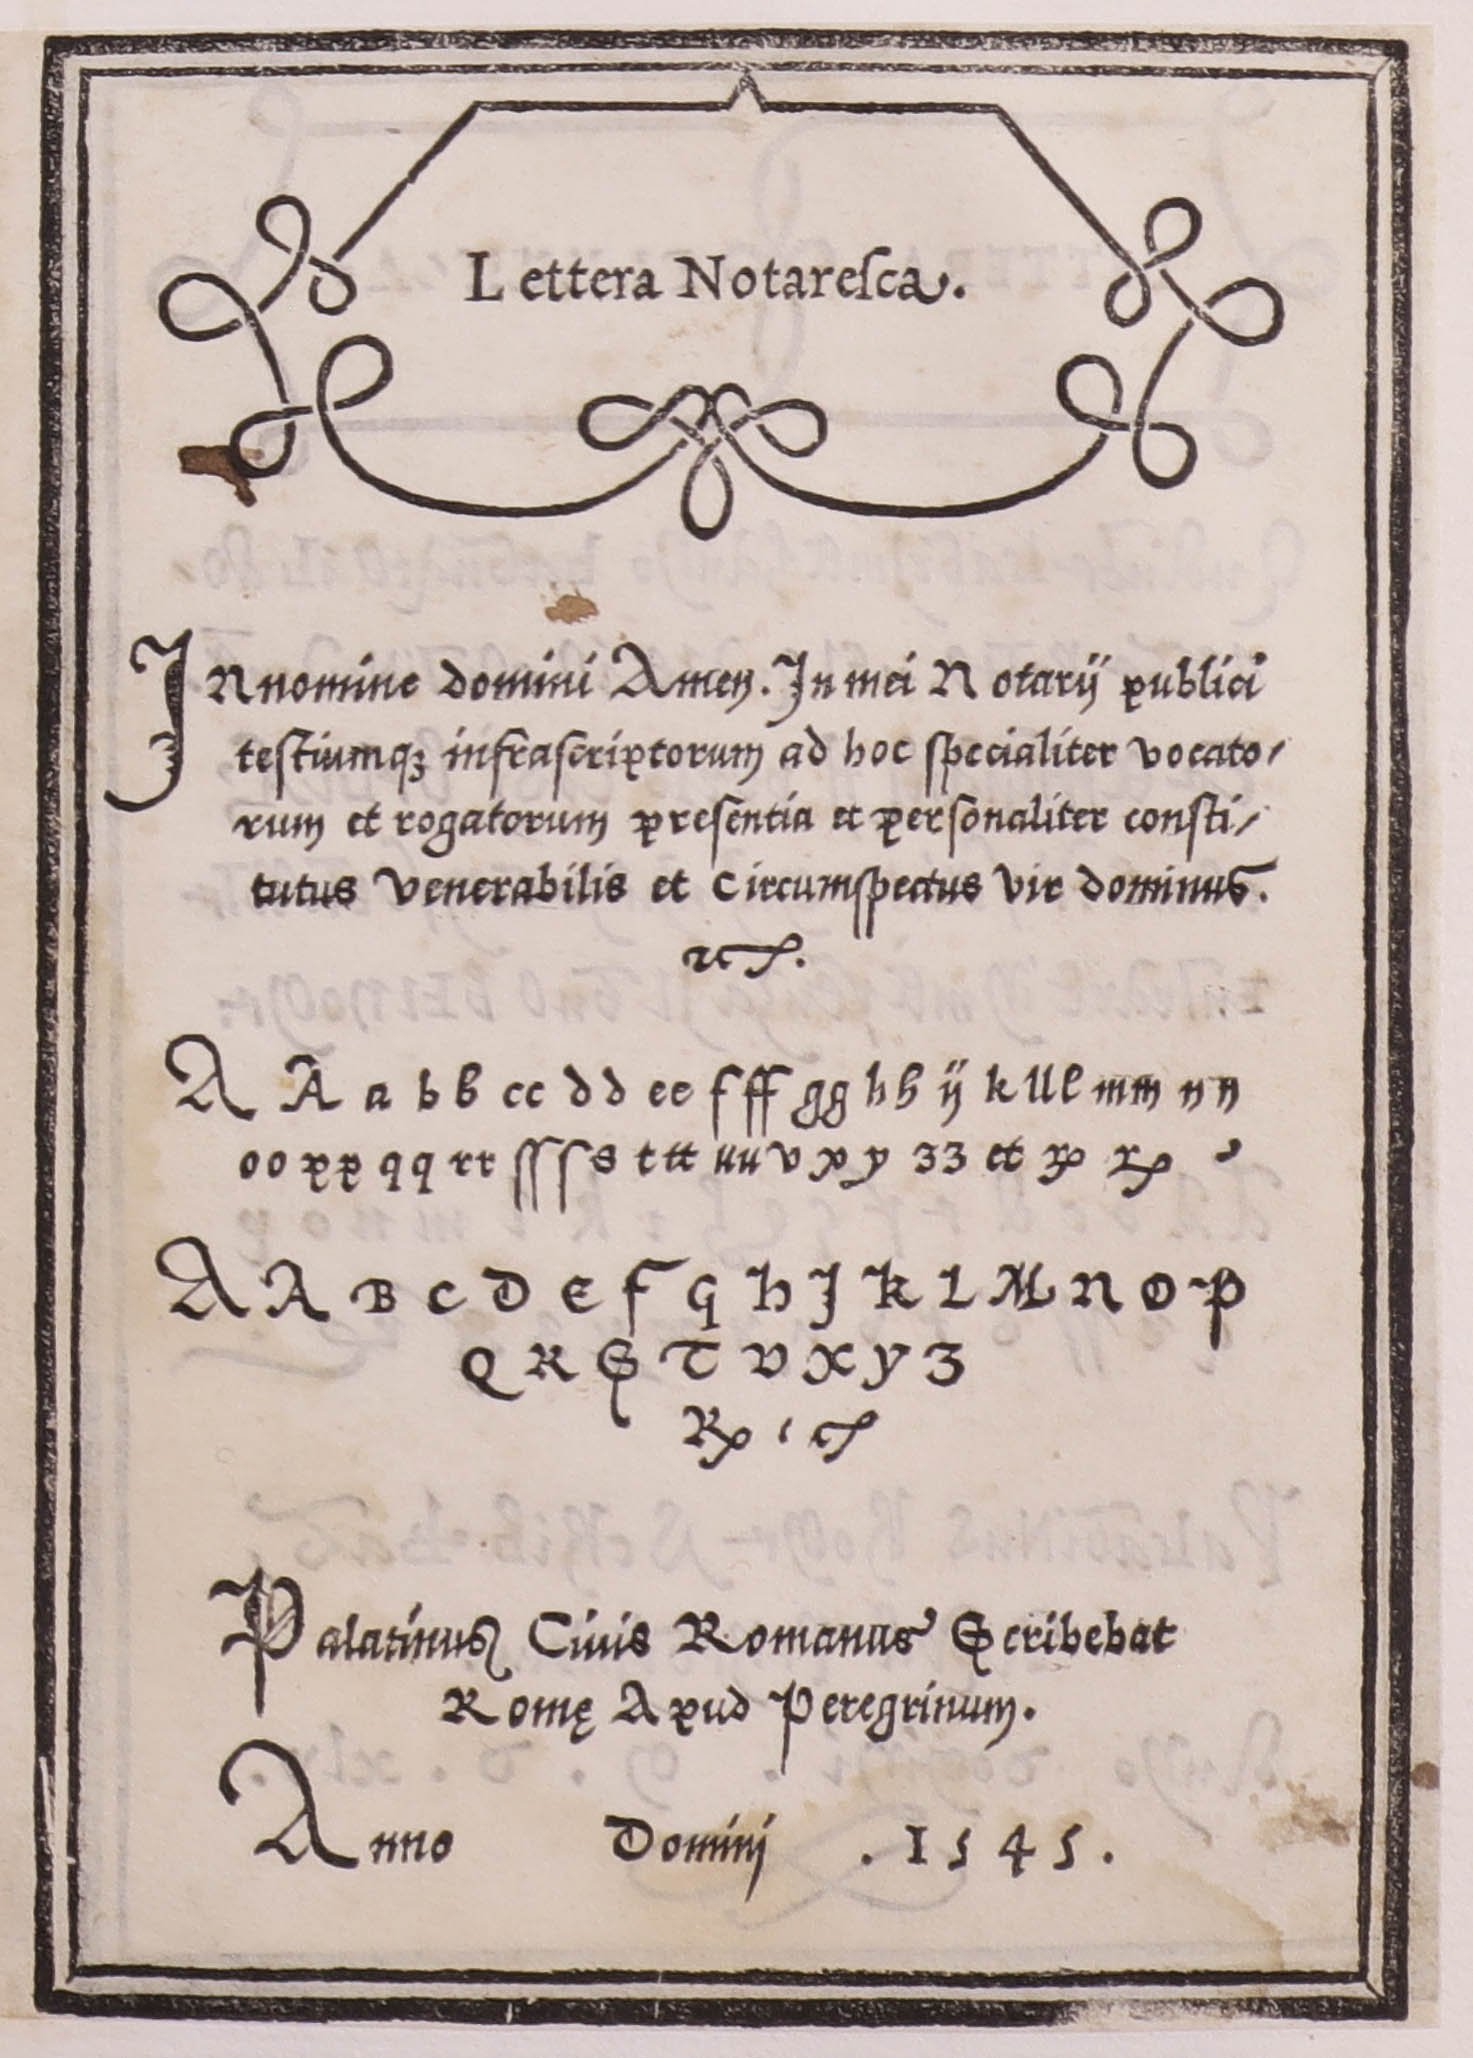 Lettera Notareſca.
In nomine domini Amen. In mei Notarij publici
teſtiumqꝫ infraſcriptorum ad hoc ſpecialiter vocato/
rum et rogatorum preſentia et perſonaliter conſti/
tutus venerabilis et Circumſpectus vir dominus.
A A a b b c c d d e e f ff g g h h ij k l l l m m n n
o o p p q q r r ſſ ſ s t tt u u v x y 3 3 et
A A B C D E F G H I K L M N O P
Q R S T V X Y Z
Palatinus Ciuis Romanus Scribebat
Romę Apud Peregrinum.
Anno Dominj . 1545 .